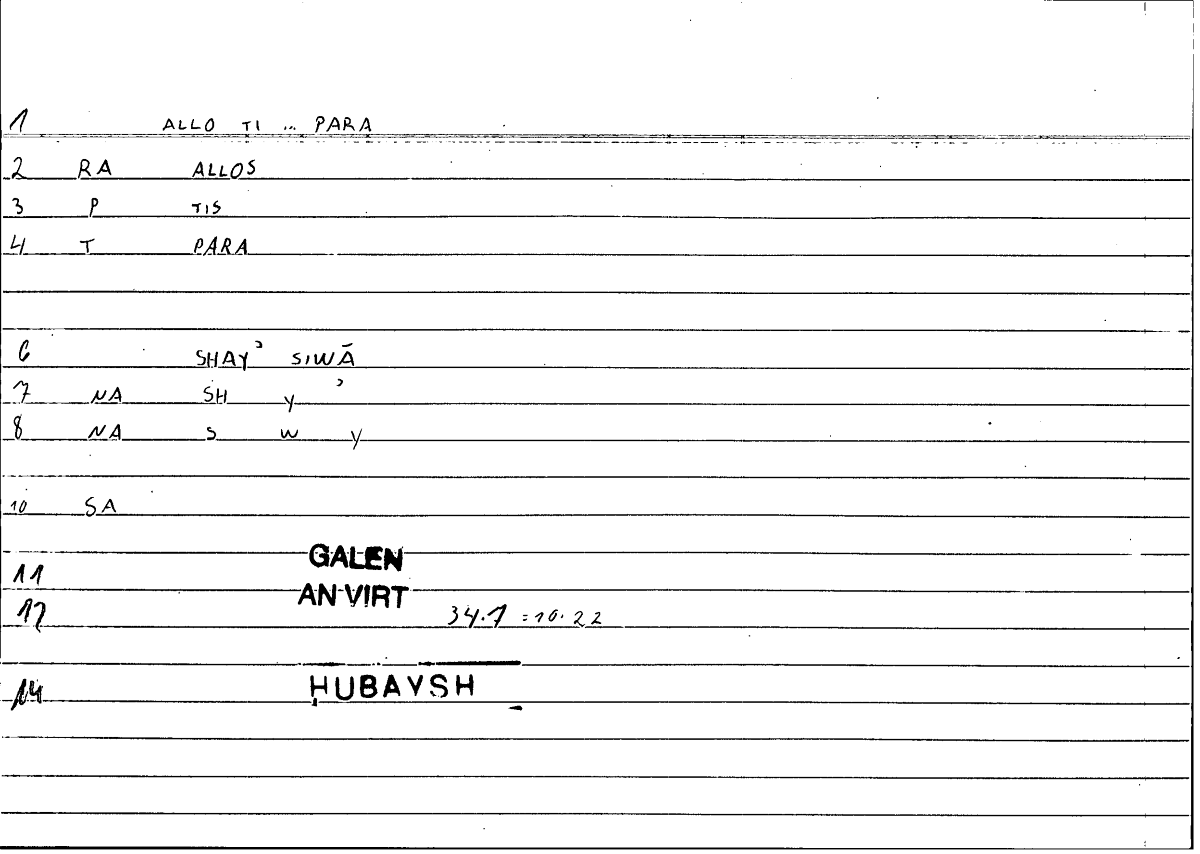 1 ALLO TI ... PARA
2 RA ALLOS
3 P TIS
4 T PARA
6 SHAYʾ SIWĀ
7 NA SH Y ʾ
8 NA S W Y
10 SA
11 GALEN
12 AN VIRT 34.1 = 10.22
14 ḤUBAYSH